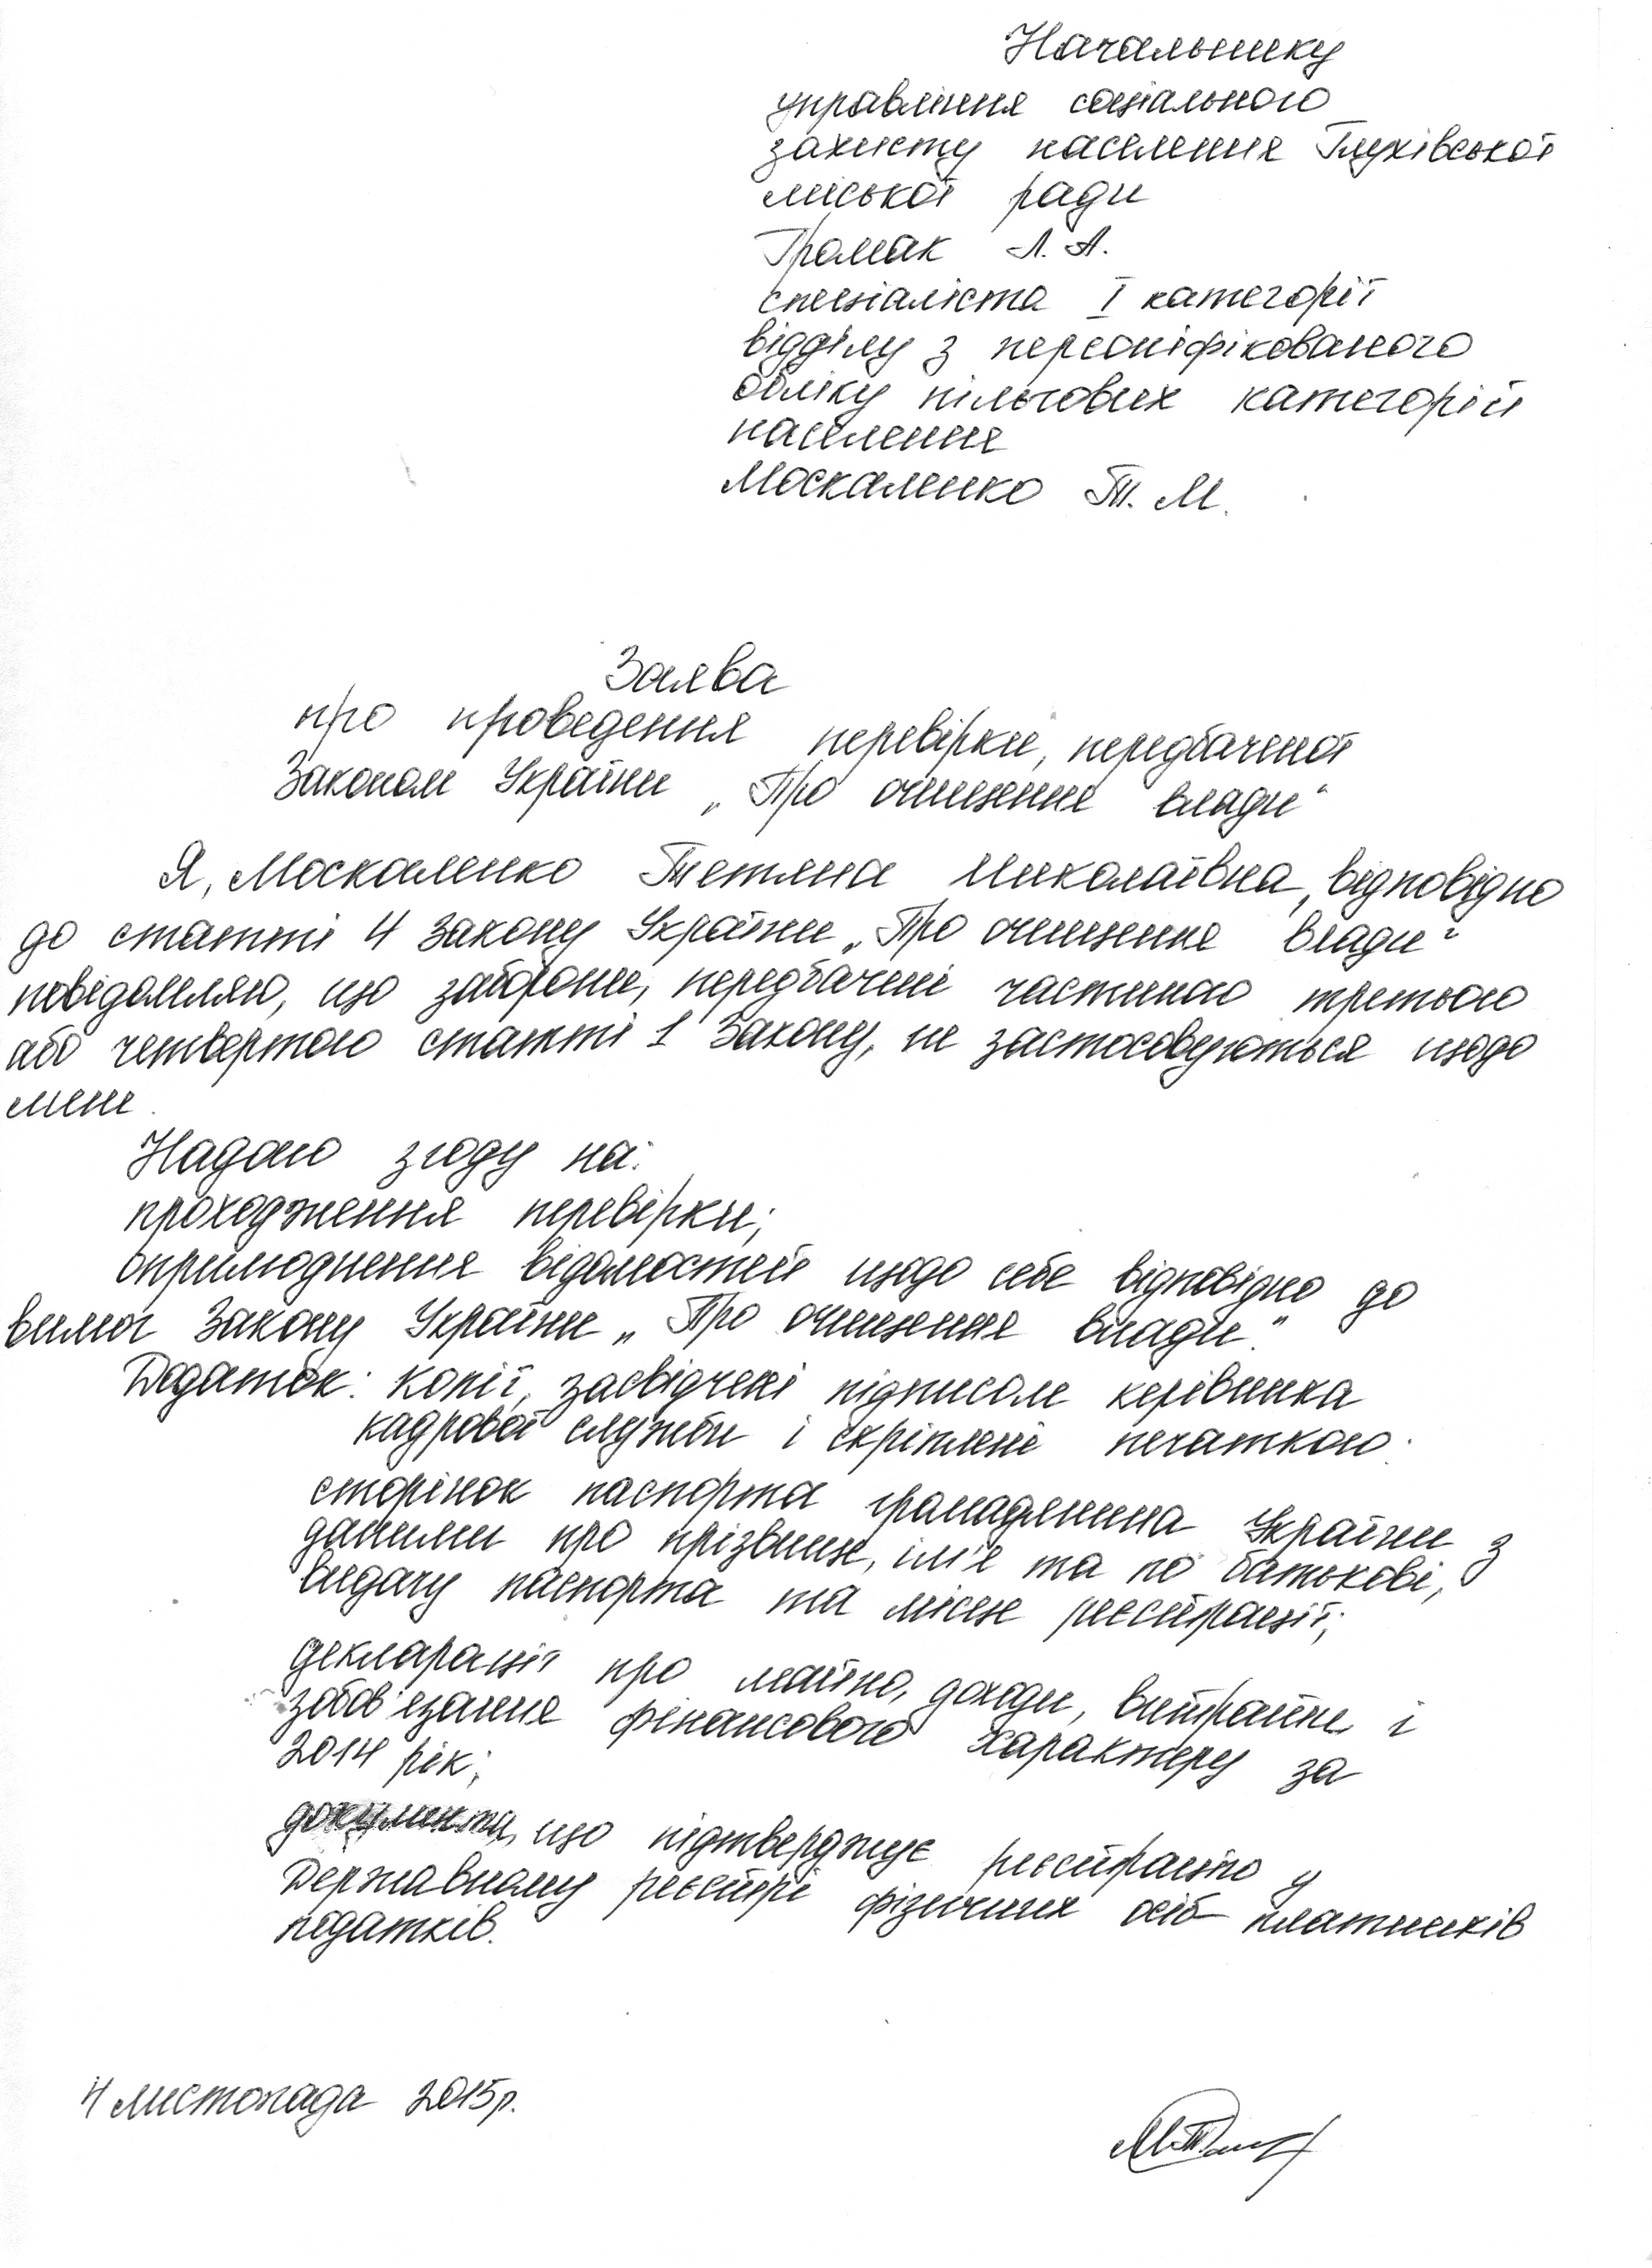 Начальнику
управління соціального
захисту населення Глухівської
міської ради
Громак Л. А.
спеціаліста І категорії
відділу з персоніфікованого
обліку пільгових категорій
населення
Москаленко Т. М.
Заява
про проведення перевірки, передбаченої
Законом України „Про очищення влади"
Я, Москаленко Тетяна Миколаївна, відповідно
до статті 4 Закону України „Про очищення влади"
повідомляю, що заборони, передбачені частиною третьою
або четвертою статті 1 Закону, не застосовуються щодо
мене.
Надаю згоду на:
проходження перевірки;
оприлюднення відомостей щодо себе відповідно до
вимог Закону України „Про очищення влади".
Додаток: копії, засвідчені підписом керівника
кадрової служби і скріплені печаткою:
сторінок паспорта громадянина України з
даними про прізвище, ім'я та по батькові,
видачу паспорта та місце реєстрації;
декларації про майно, доходи, витрати і
зобов'язання фінансового характеру за
2014 рік;
документа, що підтверджує реєстрацію у
Державному реєстрі фізичних осіб платників
податків.
4 листопада 2015р.